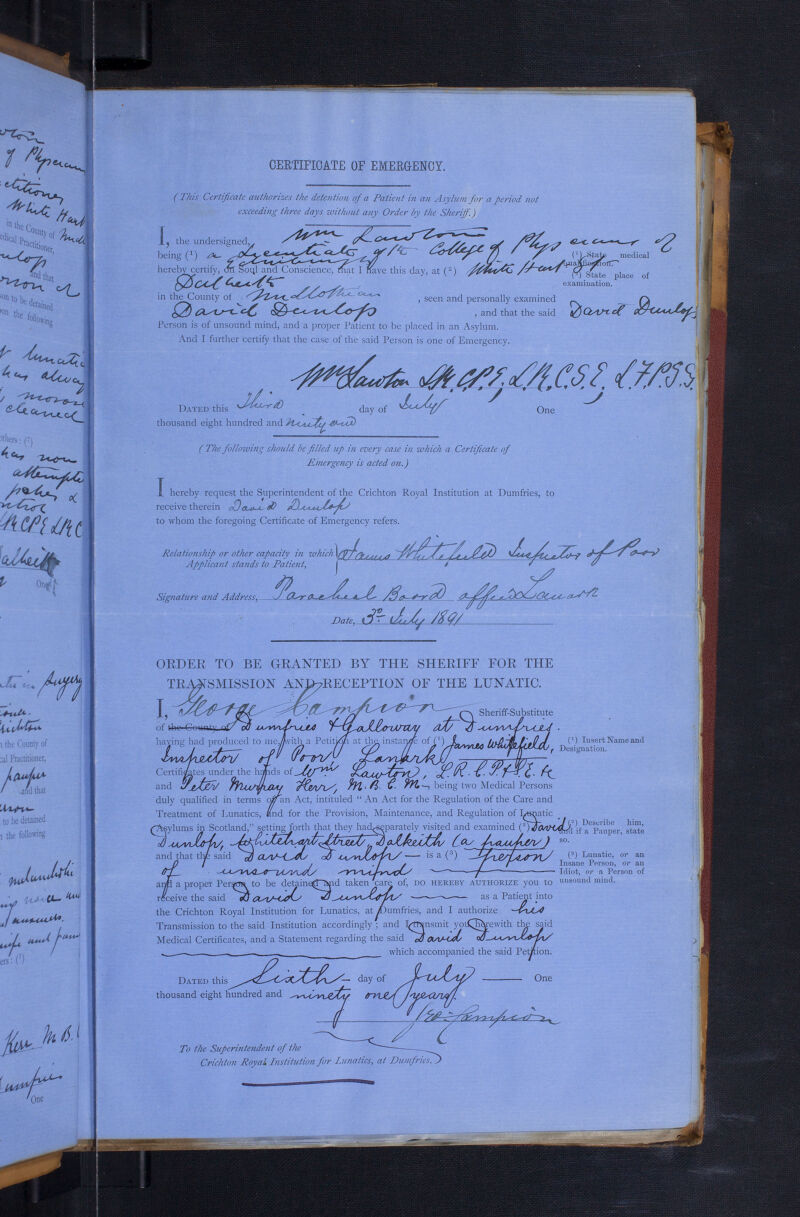 CERTIFICATE OF EMERGENCY.
(This Certificate authorizes the detention of a Patient in an Asylum for a period not
exceeding three days without any Order by the Sheriff.)
I, the undersigned, Wm Lawton
being (1) a Licentiate of the College of Physicians of
(1) State medical
qualification.
hereby certify, on Soul and Conscience, that I have this day, at (2) White Hart St
(2) State place of
examination.
Dalkeith
in the County of Midlothian , seen and personally examined
David Dunlop , and that the said David Dunlop
Person is of unsound mind, and a proper Patient to be placed in an Asylum.
And I further certify that the case of the said Person is one of Emergency.
Wm Lawton L.R.C.P.E, L.R.C.S.E, L.F.P.S.G.
DATED this Third day of July One
thousand eight hundred and Ninety one
(The following should be filled up in every case in which a Certificate of
Emergency is acted on.)
I hereby request the Superintendent of the Crichton Royal Institution at Dumfries, to
receive therein David Dunlop
to whom the foregoing Certificate of Emergency refers.
Relationship or other capacity in which
Applicant stands to Patient,
James Whitefield Inspector of Poor
Signature and Address, Parocheal Board office Lanark
Date, 3D July 1891
ORDER TO BE GRANTED BY THE SHERIFF FOR THE
TRANSMISSION AND RECEPTION OF THE LUNATIC.
I, George Campion Sheriff-Substitute
of the County of Dumfries & Galloway at Dumfries.
having had produced to me, with a Petition at the instance of (1) James Whitefield,
(1) Insert Name and
Designation.
Inspector of Poor, Lanark
Certificates under the hands of Wm Lawton, L.R.C.P. & S.E. &c
and Peter Murray Kerr, M.B.C.M. being two Medical Persons
duly qualified in terms of an Act, intituled "An Act for the Regulation of the Care and
Treatment of Lunatics, and for the Provision, Maintenance, and Regulation of Lunatic
Asylums in Scotland," setting forth that they had separately visited and examined (2) David
(2) Describe him,
and if a Pauper, state
so.
Dunlop, Whitehart Street, Dalkeith (a pauper)
and that the said David Dunlop is a (3) person
(3) Lunatic, or an
Insane Person, or an
Idiot, or a Person of
unsound mind.
of unsound mind
and a proper Person to be detained and taken care of, DO HEREBY AUTHORIZE you to
receive the said David Dunlop as a Patient into
the Crichton Royal Institution for Lunatics, at Dumfries, and I authorize his
Transmission to the said Institution accordingly; and I transmit you herewith the said
Medical Certificates, and a Statement regarding the said David Dunlop
which accompanied the said Petition.
DATED this Sixth day of July One
thousand eight hundred and ninety one years.
Geo: Campion
To the Superintendent of the
Crichton Royal Institution for Lunatics, at Dumfries.